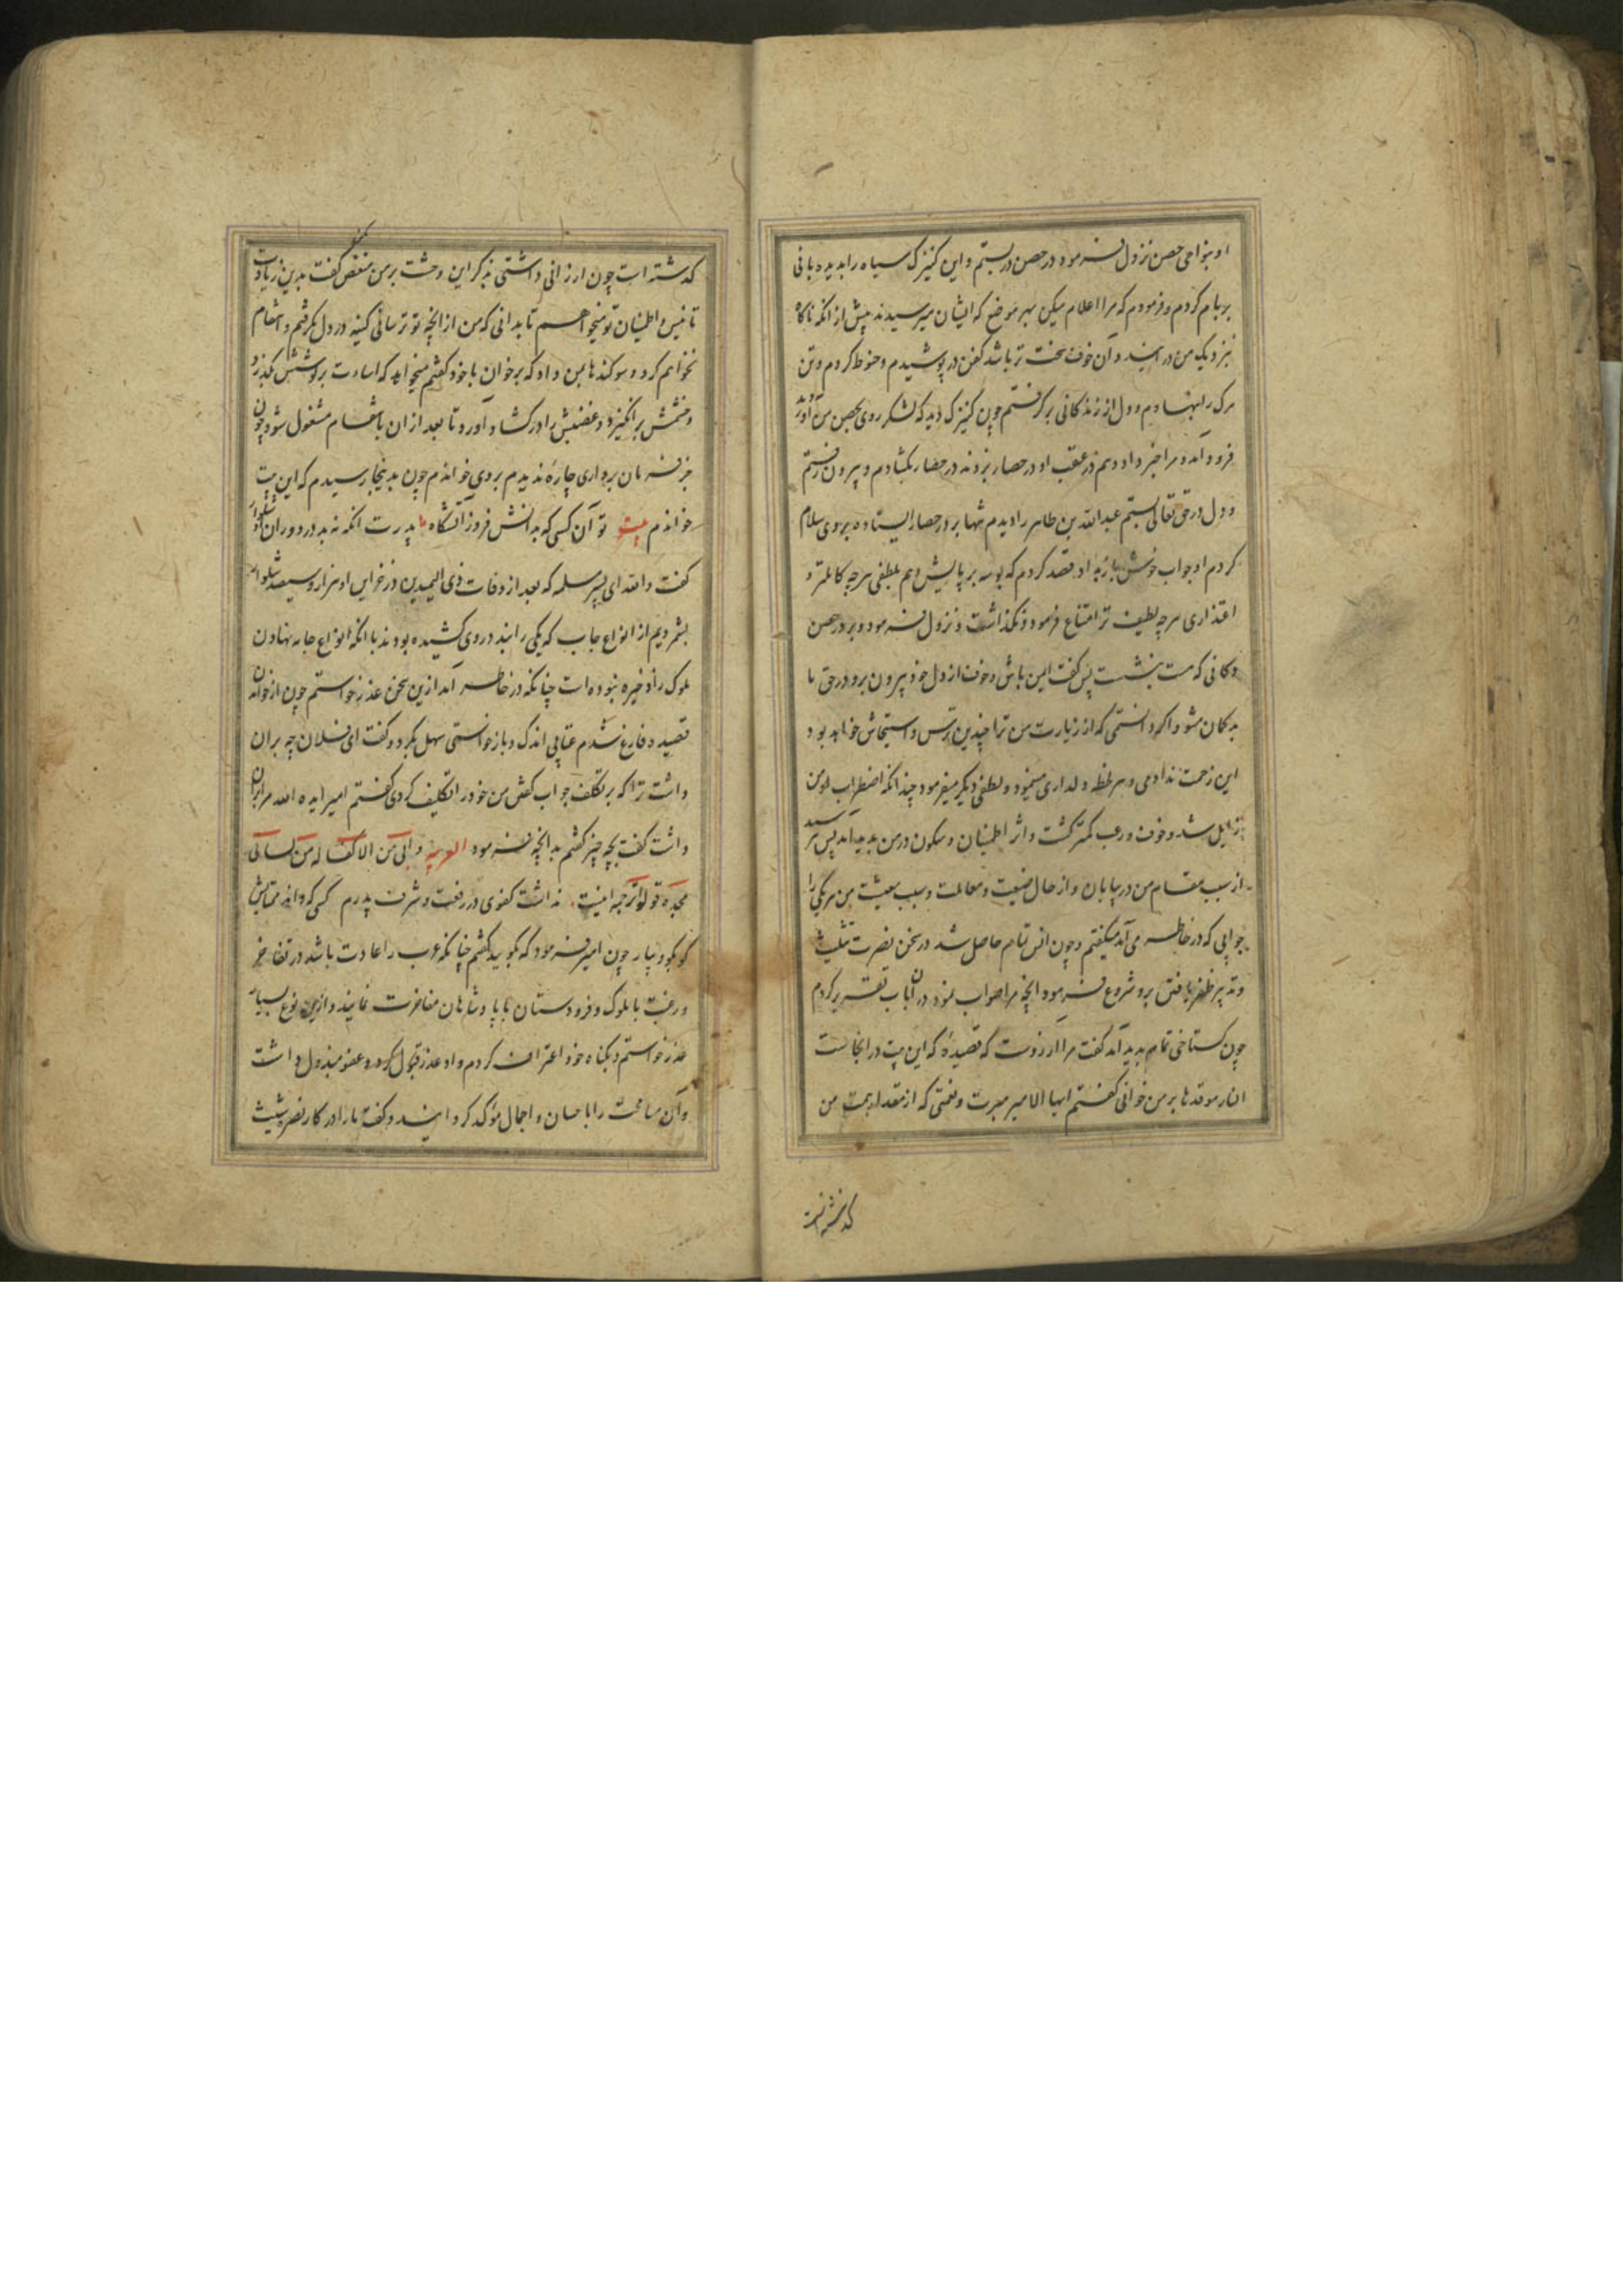 او بنواحی حصن نزول فرمود در حصن دربستم و این کنیزک سیاه را بدیده بانی
بر بام کردم و فرمودم که مرا اعلام میکن بهر موضع که ایشان میرسیدند پیش از انکه ناکاه
بنزدیک من در ایند و آن خوف سخت تر باشد کفن در پوشیدم و حنوط کردم و تن
مرک را بنهادم و دل از زندکانی برکرفتم چون کنیزک دید که لشکر روی بحصن من آورد
فرود آمد و مرا خبر داد و هم در عقب او در حصار بزدند در حصار بکشادم و بیرون رفتم
و دل در حق تعالی بستم عبدالله بن طاهر را دیدم تنها بر در حصار ایستاده بروی سلام
کردم او جواب خوش باز داد قصد کردم که بوسه بر پایش دهم بلطفی هرچه کاملتر و
اعتذاری هرچه لطیف تر امتناع فرمود و نکذاشت و نزول فرمود و بر در حصن
دکانی که هست بنشست پس کفت ایمن باش و خوف از دل خود بیرون بر و در حق ما
بد کمان مشو و اکر دانستمی که از زیارت من ترا چندین ترس و استیحاش خواهد بود
این زحمت ندادمی و هر لحظه دلداری مینمود و لطفی دیکر میفرمود چندانکه اضطراب از من
زایل شد و خوف و رعب کمتر کشت و اثر اطمینان و سکون در من پدید آمد پس پرسید
از سبب مقام من در بیابان و از حال ضیعت و معاملت و سبب معیشت من هر یکی را
جوابی که در خاطر می آمد میکفتم و چون انس تمام حاصل شد در سخن نصر شبث
و تدبیر ظفر یافتن برو شروع فرمود انچه مرا صواب نمود در ان باب تقریر کردم
چون کستاخی تمام پدید آمد کفت مرا آرزوست که قصیدهٔ که این بیت در انجاست
النار موقدها بر من خوانی کفتم ایها الامیر مبرت و نعمتی که از مقدار همت من
کذشته است
کذشته است چون ارزانی داشتی بذکر این وحشت بر من منغص مکن کفت بدین زیادت
تانیس و اطمینان تو میخواهم تا بدانی که من از انچه تو ترسانی کینه در دل نکرفتم و انتقام
نخواهم کرد و سوکندها بمن داد که برخوان با خود کفتم میخواهد که اساءت بر کوشش بکذرد
و خشمش برانکیزد و غضبش را در کشاد آورد تا بعد از ان بانتقام مشغول شود و چون
جز فرمان برداری چارهٔ ندیدم بروی خواندم چون بدینجا رسیدم که این بیت
خواندم بیت تو آن کسی که بدانش فروز آتشکاه پدرت انکه نه بد در دوران شلوار
کفت والله ای پسر مسلمه که بعد از وفات ذی الیمینین در خزاین او هزار و سیصد شلوار
بشمردیم از انواع جاب که یکی را بند در وی کشیده بودند با انکه انواع جامه نهادن
ملوک را ذخیره نبوده است چنانکه در خاطر آمد ازین سخن عذر خواستم چون از خواندن
قصیده فارغ شدم عتابی اندک و بازخواستی سهل بکرد و کفت ای فلان چه بر ان
داشت ترا که بر تکلف جواب کفتن من خود را تکلیف کردی کفتم امیر ایده الله مرا بر ان
داشت کفت بچه چیز کفتم بدانچه فرمود العربیه و ابی من لا کفا له من یساتی
مجده قولوا ترجمه اینست نداشت کفوی در رفعت و شرف پدرم کسی که داند همتایش
کو بکو و بیار چون امیر فرمود که بکویید کفتم چنانکه عرب را عادت باشد در تفاخر
و رغبت با ملوک و فرودستان با پادشاهان مفاخرت نمایند و ازین نوع بسیار
عذر خواستم و بکناه خود اعتراف کردم و او عذر قبول کرد و عفو مبذول داشت
و آن مسامحت را با حسان و اجمال مؤکد کردانید و کفت ما را در کار نصر شبث